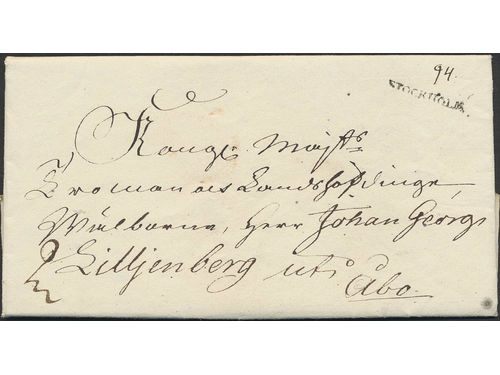 94.
STOCKHOLM.
Kongl Majts
Troman och Landshöfdinge
Wälborne, Herr Johan Georg
Lilljenberg uti
Åbo